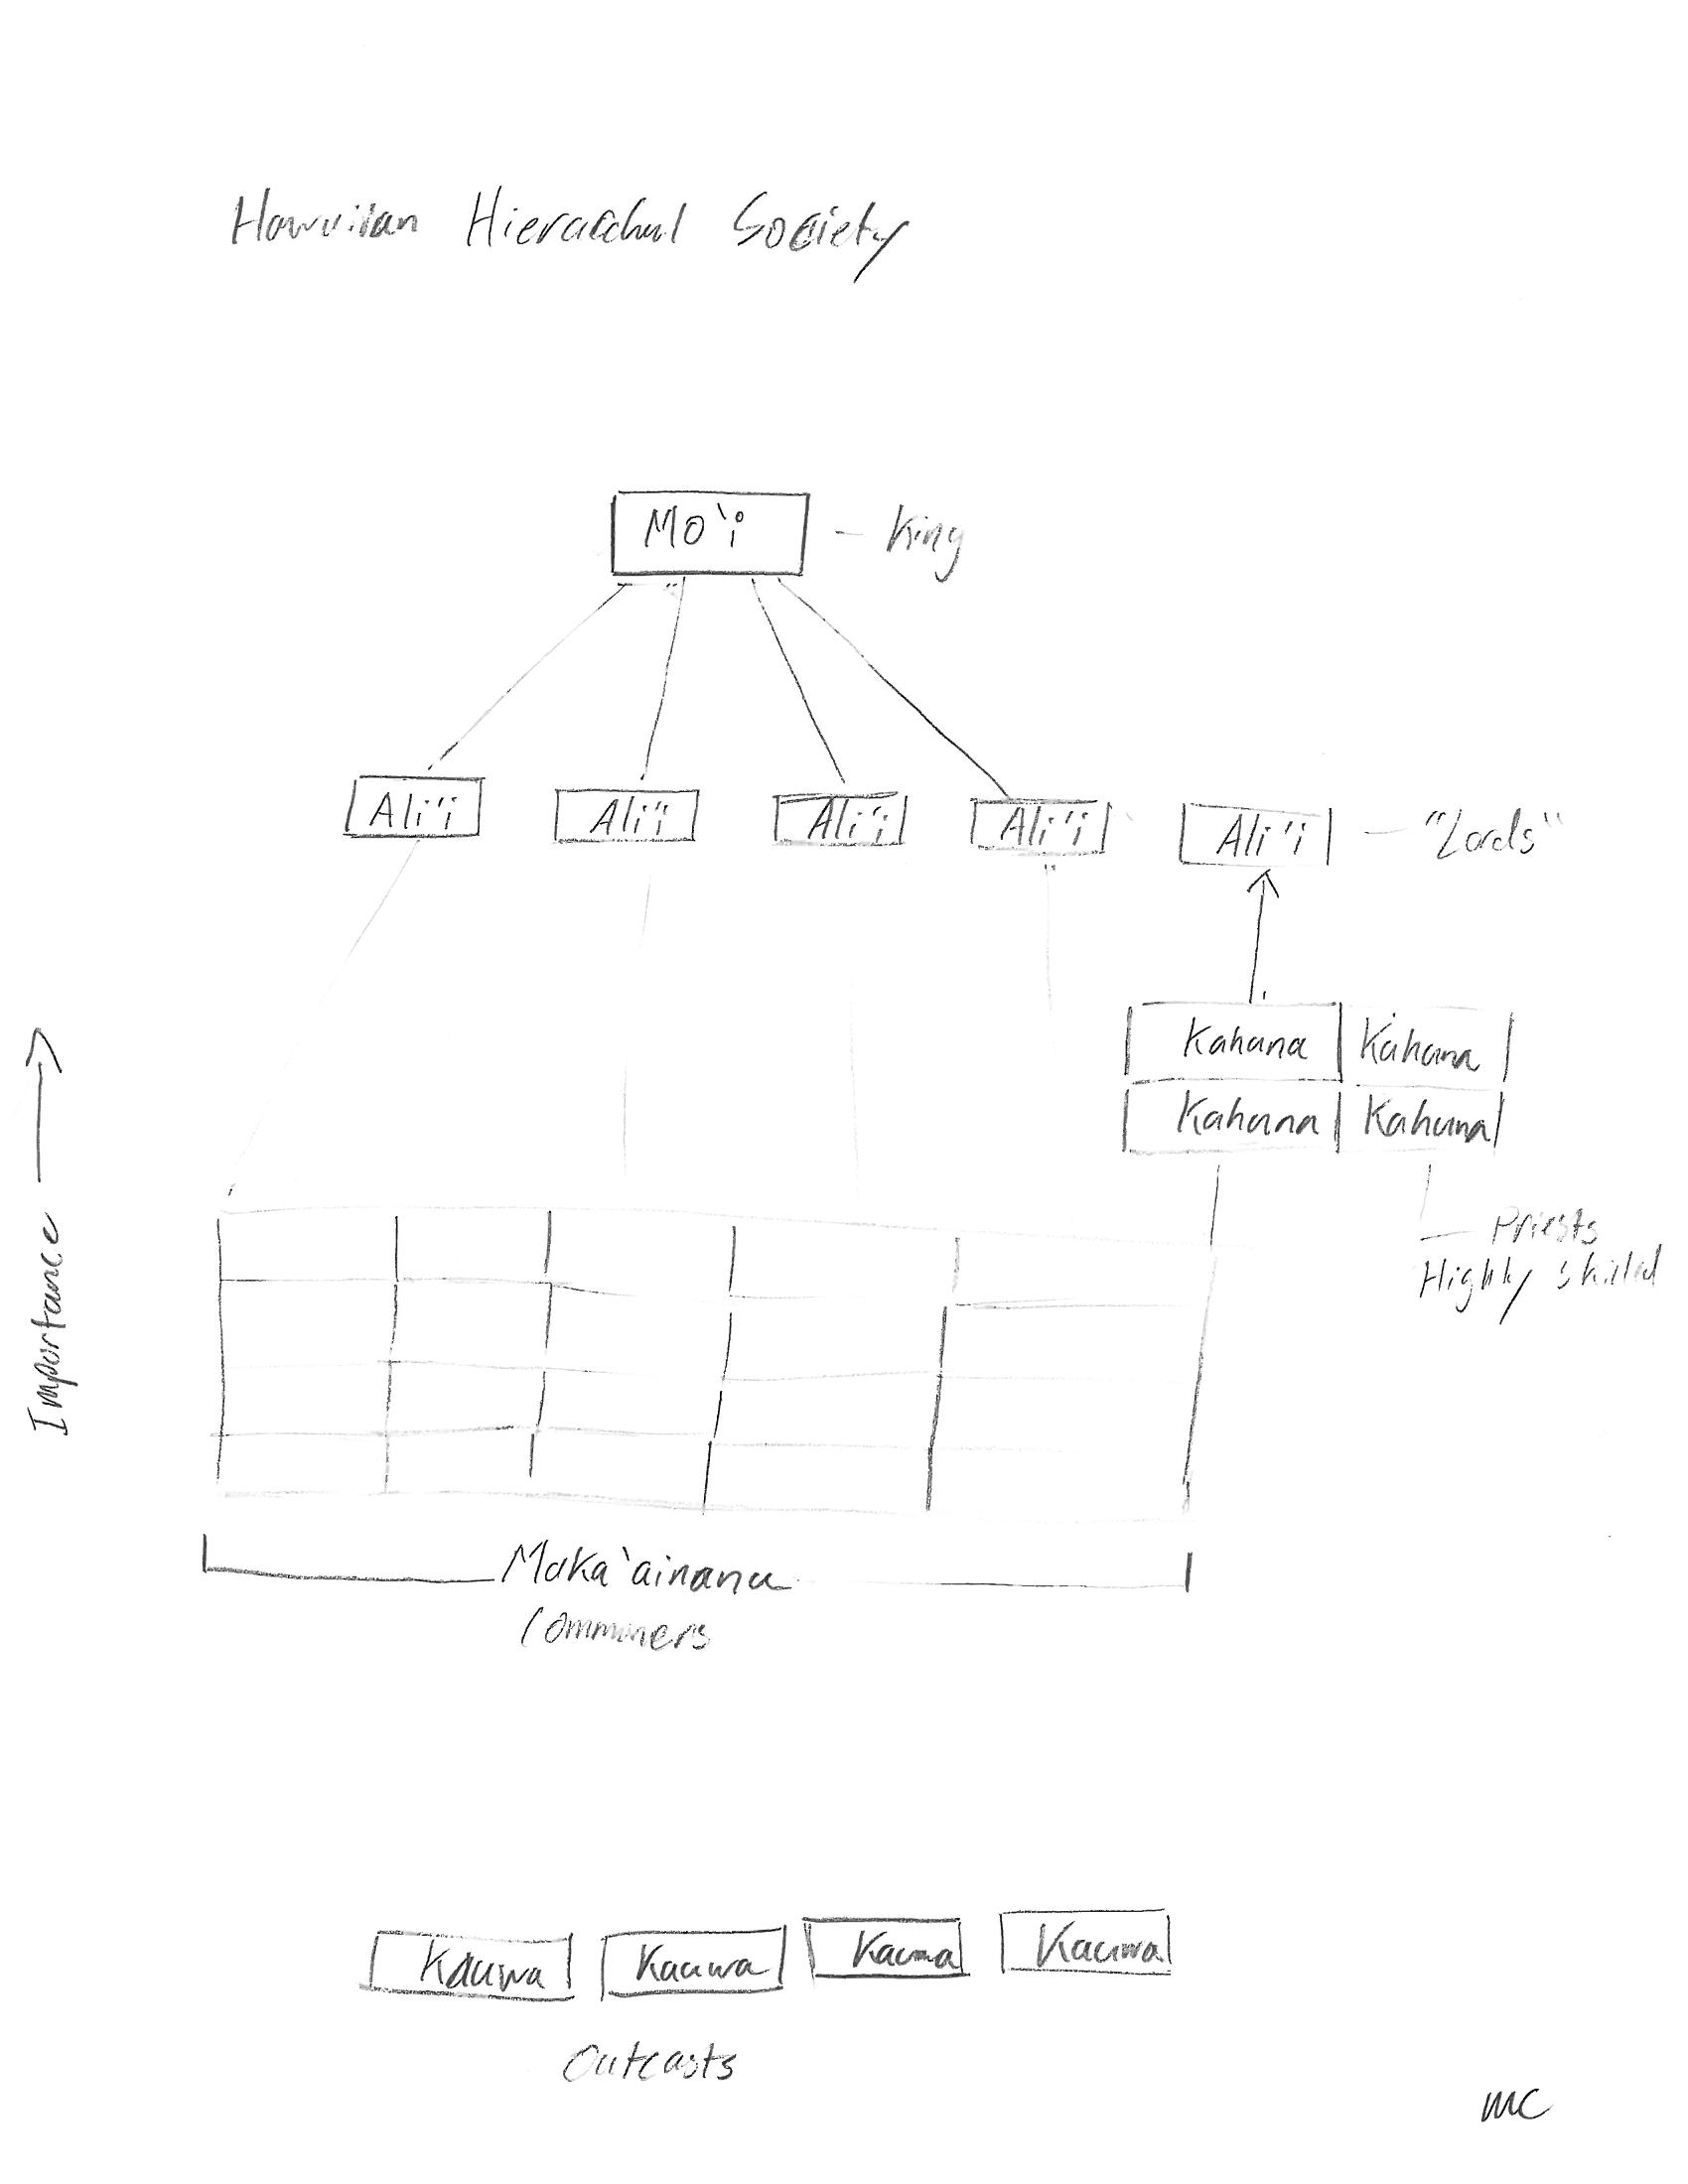 Hawaiian Hierarchal Society
Mo'i - King
Ali'i Ali'i Ali'i Ali'i Ali'i - "Lords"
Kahuna Kahuna
Kahuna Kahuna
Priests
Highly skilled
Importance
Maka'ainana
Commoners
Kauwa Kauwa Kauwa Kauwa
Outcasts
MC